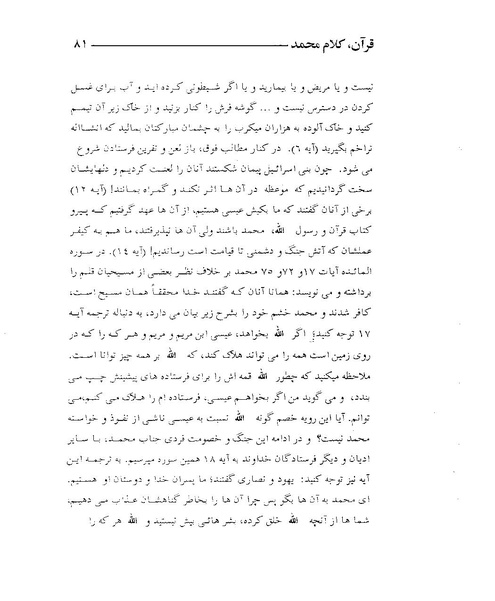 قرآن، کلام محمد ــــــــــــــــــــ ۸۱
نیست و یا مریض و یا بیمارید و یا اگر شیطونی کرده اید و آب برای غسل
کردن در دسترس نیست و ... گوشه فرش را کنار بزنید و از خاک زیر آن تیمم
کنید و خاک آلوده به هزاران میکرب را به چشمان مبارکتان بمالید که انشااله
تراخم بگیرید (آیه ۶). در کنار مطالب فوق، باز لعن و نفرین فرستادن شروع
می شود. چون بنی اسرائیل پیمان شکستند آنان را لعنت کردیم و دلهایشان
سخت گردانیدیم که موعظه در آن ها اثر نکند و گمراه بمانند! (آیه ۱۲)
برخی از آنان گفتند که ما بکیش عیسی هستیم، از آن ها عهد گرفتیم که پیرو
کتاب قرآن و رسول الله، محمد باشند ولی آن ها نپذیرفتند، ما هم به کیفر
عملشان که آتش جنگ و دشمنی تا قیامت است رساندیم! (آیه ۱۴). در سوره
المائده آیات ۱۷و ۷۲و ۷۵ محمد بر خلاف نظر بعضی از مسیحیان قلم را
برداشته و می نویسد: همانا آنان که گفتند خدا محققاً همان مسیح است،
کافر شدند و محمد خشم خود را بشرح زیر بیان می دارد، به دنباله ترجمه آیه
۱۷ توجه کنید؛ اگر الله بخواهد، عیسی ابن مریم و مریم و هر که را که در
روی زمین است همه را می تواند هلاک کند، که الله بر همه چیز توانا است.
ملاحظه میکنید که چطور الله قمه اش را برای فرستاده های پیشینش چپ می
بندد، و می گوید من اگر بخواهم عیسی، فرستاده ام را هلاک می کنم، می
توانم. آیا این رویه خصم گونه الله نسبت به عیسی ناشی از نفوذ و خواسته
محمد نیست؟ و در ادامه این جنگ و خصومت فردی جناب محمد، با سایر
ادیان و دیگر فرستادگان خداوند به آیه ۱۸ همین سوره میرسیم. به ترجمه این
آیه نیز توجه کنید: یهود و نصاری گفتند؛ ما پسران خدا و دوستان او هستیم.
ای محمد به آن ها بگو پس چرا آن ها را بخاطر گناهشان عذاب می دهیم،
شما ها از آنچه الله خلق کرده، بشر هائی بیش نیستید و الله هر که را